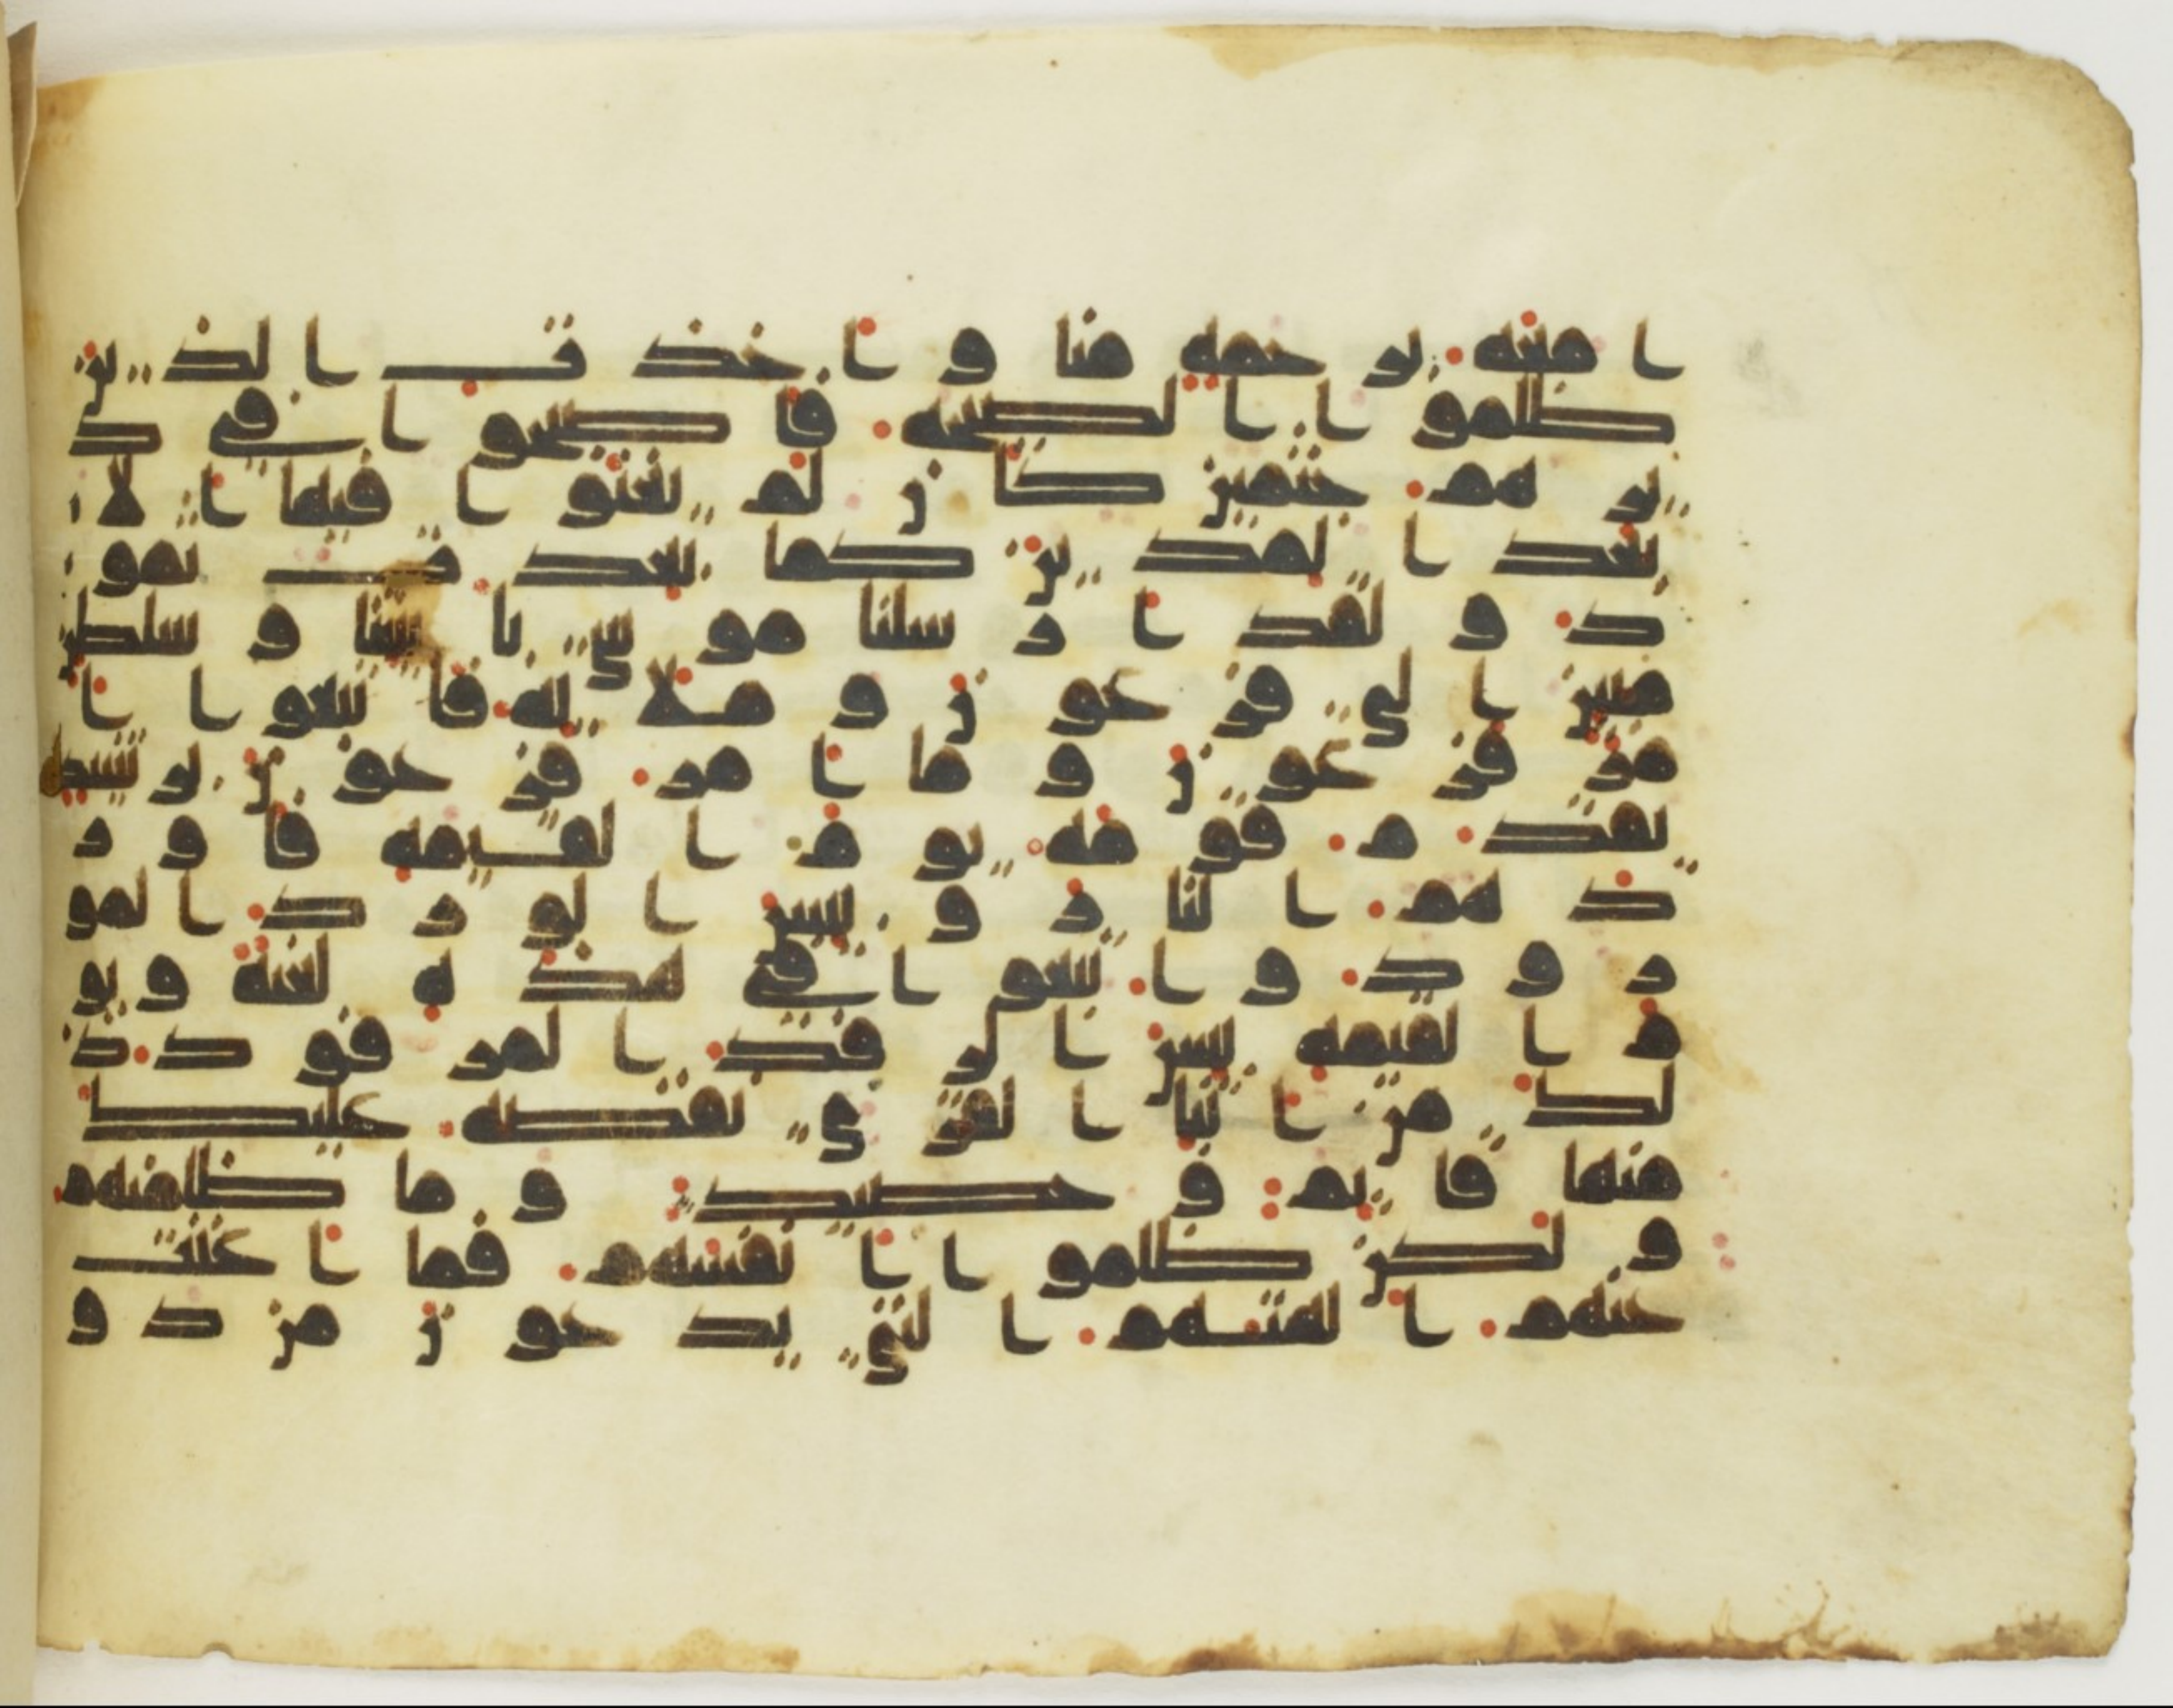 ا معه برحمه منا واخذت الذين
ظلموا الصيحه فاصبحوا في د
يرهم جثمين كان لم يغنوا فيها الا
بعدا لمدين كما بعدت ثمو
د ولقد ارسلنا موسى بايتنا وسلطن
مبين الى فرعون وملايه فاتبعوا ا
مر فرعون وما امر فرعون برشيد
يقدم قومه يوم القيمه فاور
دهم النار وبيس الورد المو
رود واتبعوا في هذه لعنه ويو
م القيمه بيس الرفد المرفود ذ
لك من انبا القرى نقصه عليك
منها قايم وحصيد وما ظلمنهم
ولكن ظلموا انفسهم فما اغنت
عنهم الهتهم التي يدعون من دو